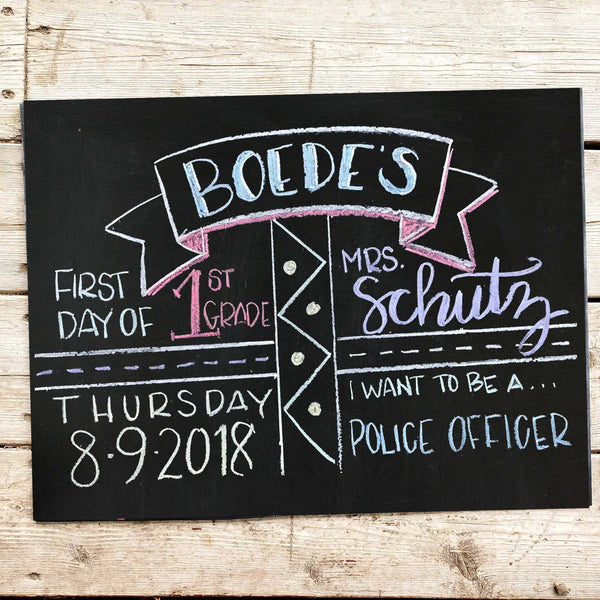 BOEDE'S
FIRST
DAY OF 1ST GRADE
THURSDAY
8·9·2018
MRS.
Schutz
I WANT TO BE A...
POLICE OFFICER